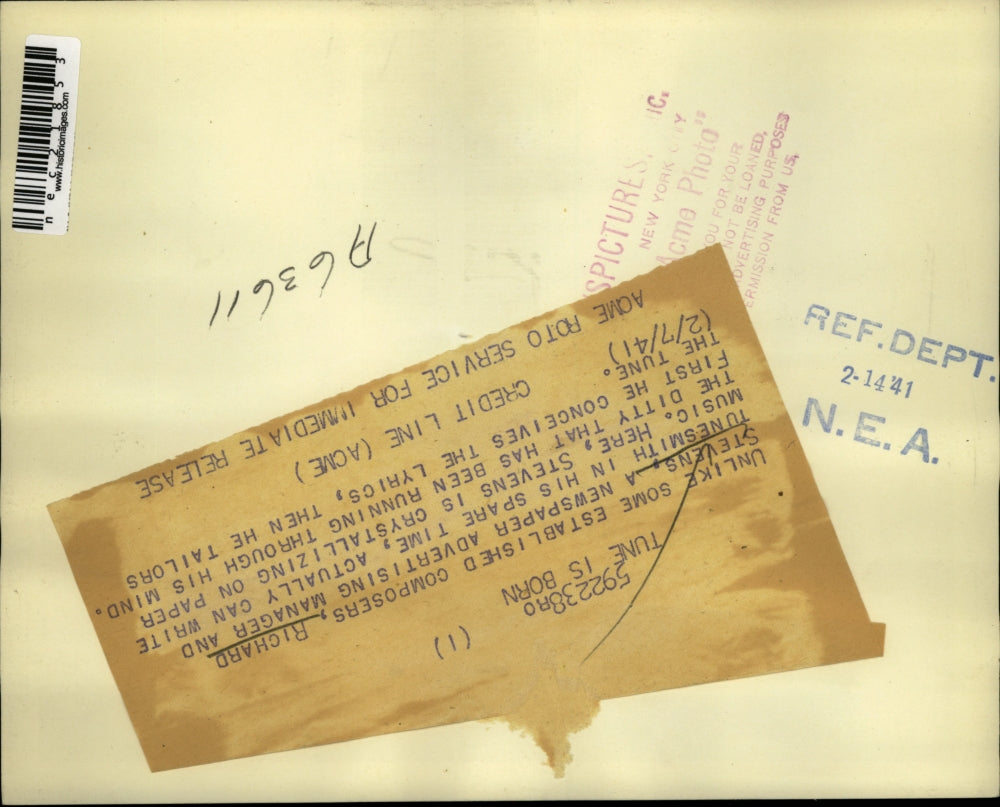 nec21853
www.historicimages.com
A63611
SPICTURES, IC.
NEW YORK C Y
Acme Photo"
OU FOR YOUR
NOT BE LOANED,
DVERTISING PURPOSES
ERMISSION FROM US.
REF. DEPT.
2-14'41
N.E.A.
(1)
592238RO
TUNE IS BORN
UNLIKE SOME ESTABLISHED COMPOSERS, RICHARD
STEVENS, A NEWSPAPER ADVERTISING MANAGER AND
TUNESMITH IN HIS SPARE TIME, ACTUALLY CAN WRITE
MUSIC. HERE, STEVENS IS CRYSTALLIZING ON PAPER
THE DITTY THAT HAS BEEN RUNNING THROUGH HIS MIND.
FIRST HE CONCEIVES THE LYRICS, THEN HE TAILORS
THE TUNE.
(2/7/41) CREDIT LINE (ACME)
ACME ROTO SERVICE FOR IMMEDIATE RELEASE